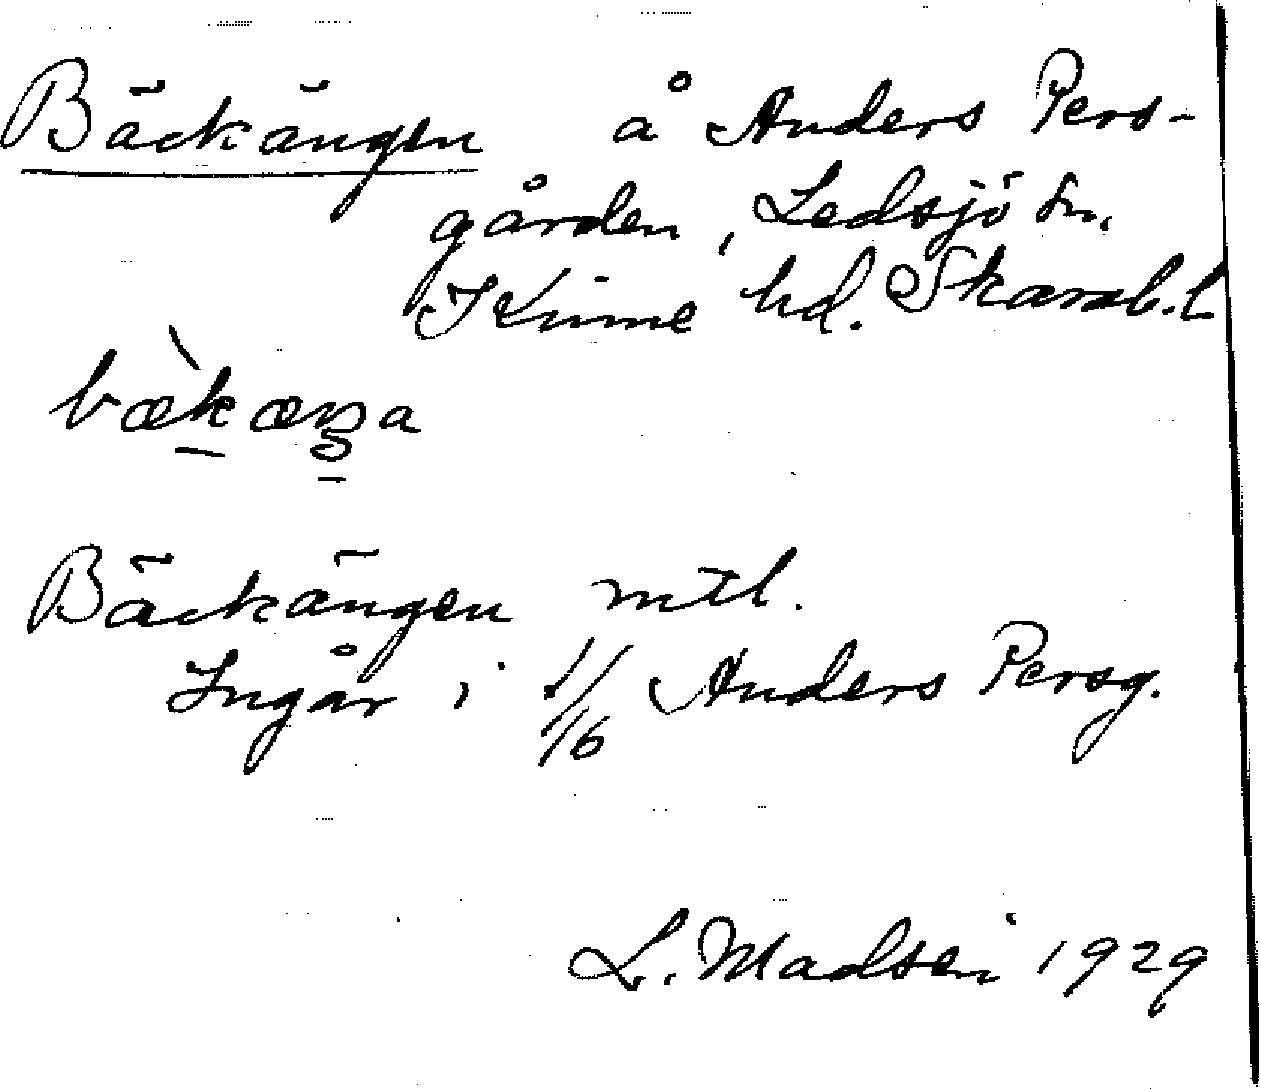 Bäckängen å Anders Pers-
gården, Ledsjö sn.
Kinne hd. Skarab.l
bæ̀kæŋa
Bäckängen mtl.
Ingår i 1/16 Anders Persg.
L. Madsen 1929